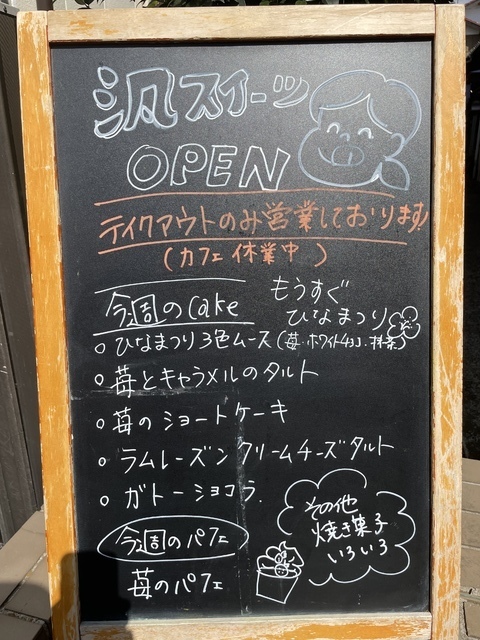 汎スイーツ
OPEN
テイクアウトのみ営業しております
(カフェ休業中)
今週のCake
もうすぐ
ひなまつり
○ひなまつり3色ムース(苺・ホワイトチョコ・抹茶)
○苺とキャラメルのタルト
○苺のショートケーキ
○ラムレーズンクリームチーズタルト
○ガトーショコラ.
今週のパフェ
苺のパフェ
その他
焼き菓子
いろいろ